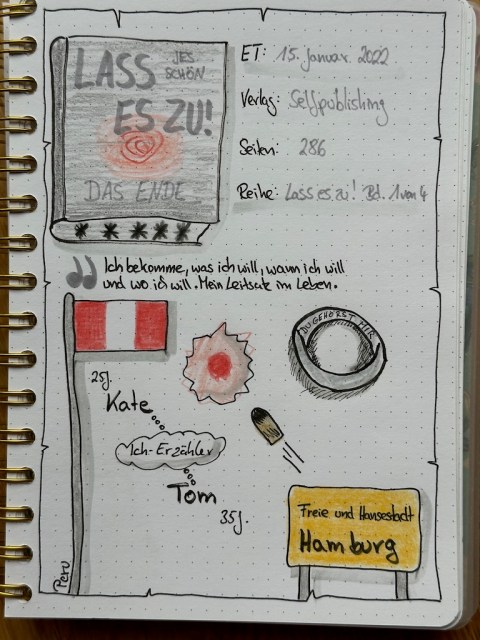 LASS JES SCHÖN
ES ZU!
DAS ENDE
ET: 15. Januar 2022
Verlag: Selfpublishing
Seiten: 286
Reihe: Lass es zu! Bd. 1 von 4
Ich bekomme, was ich will, wann ich will
und wo ich will. Mein Leitsatz im Leben.
DU GEHÖRST MIR
25J.
Kate
Ich-Erzähler
Tom
35J.
Peru
Freie und Hansestadt
Hamburg